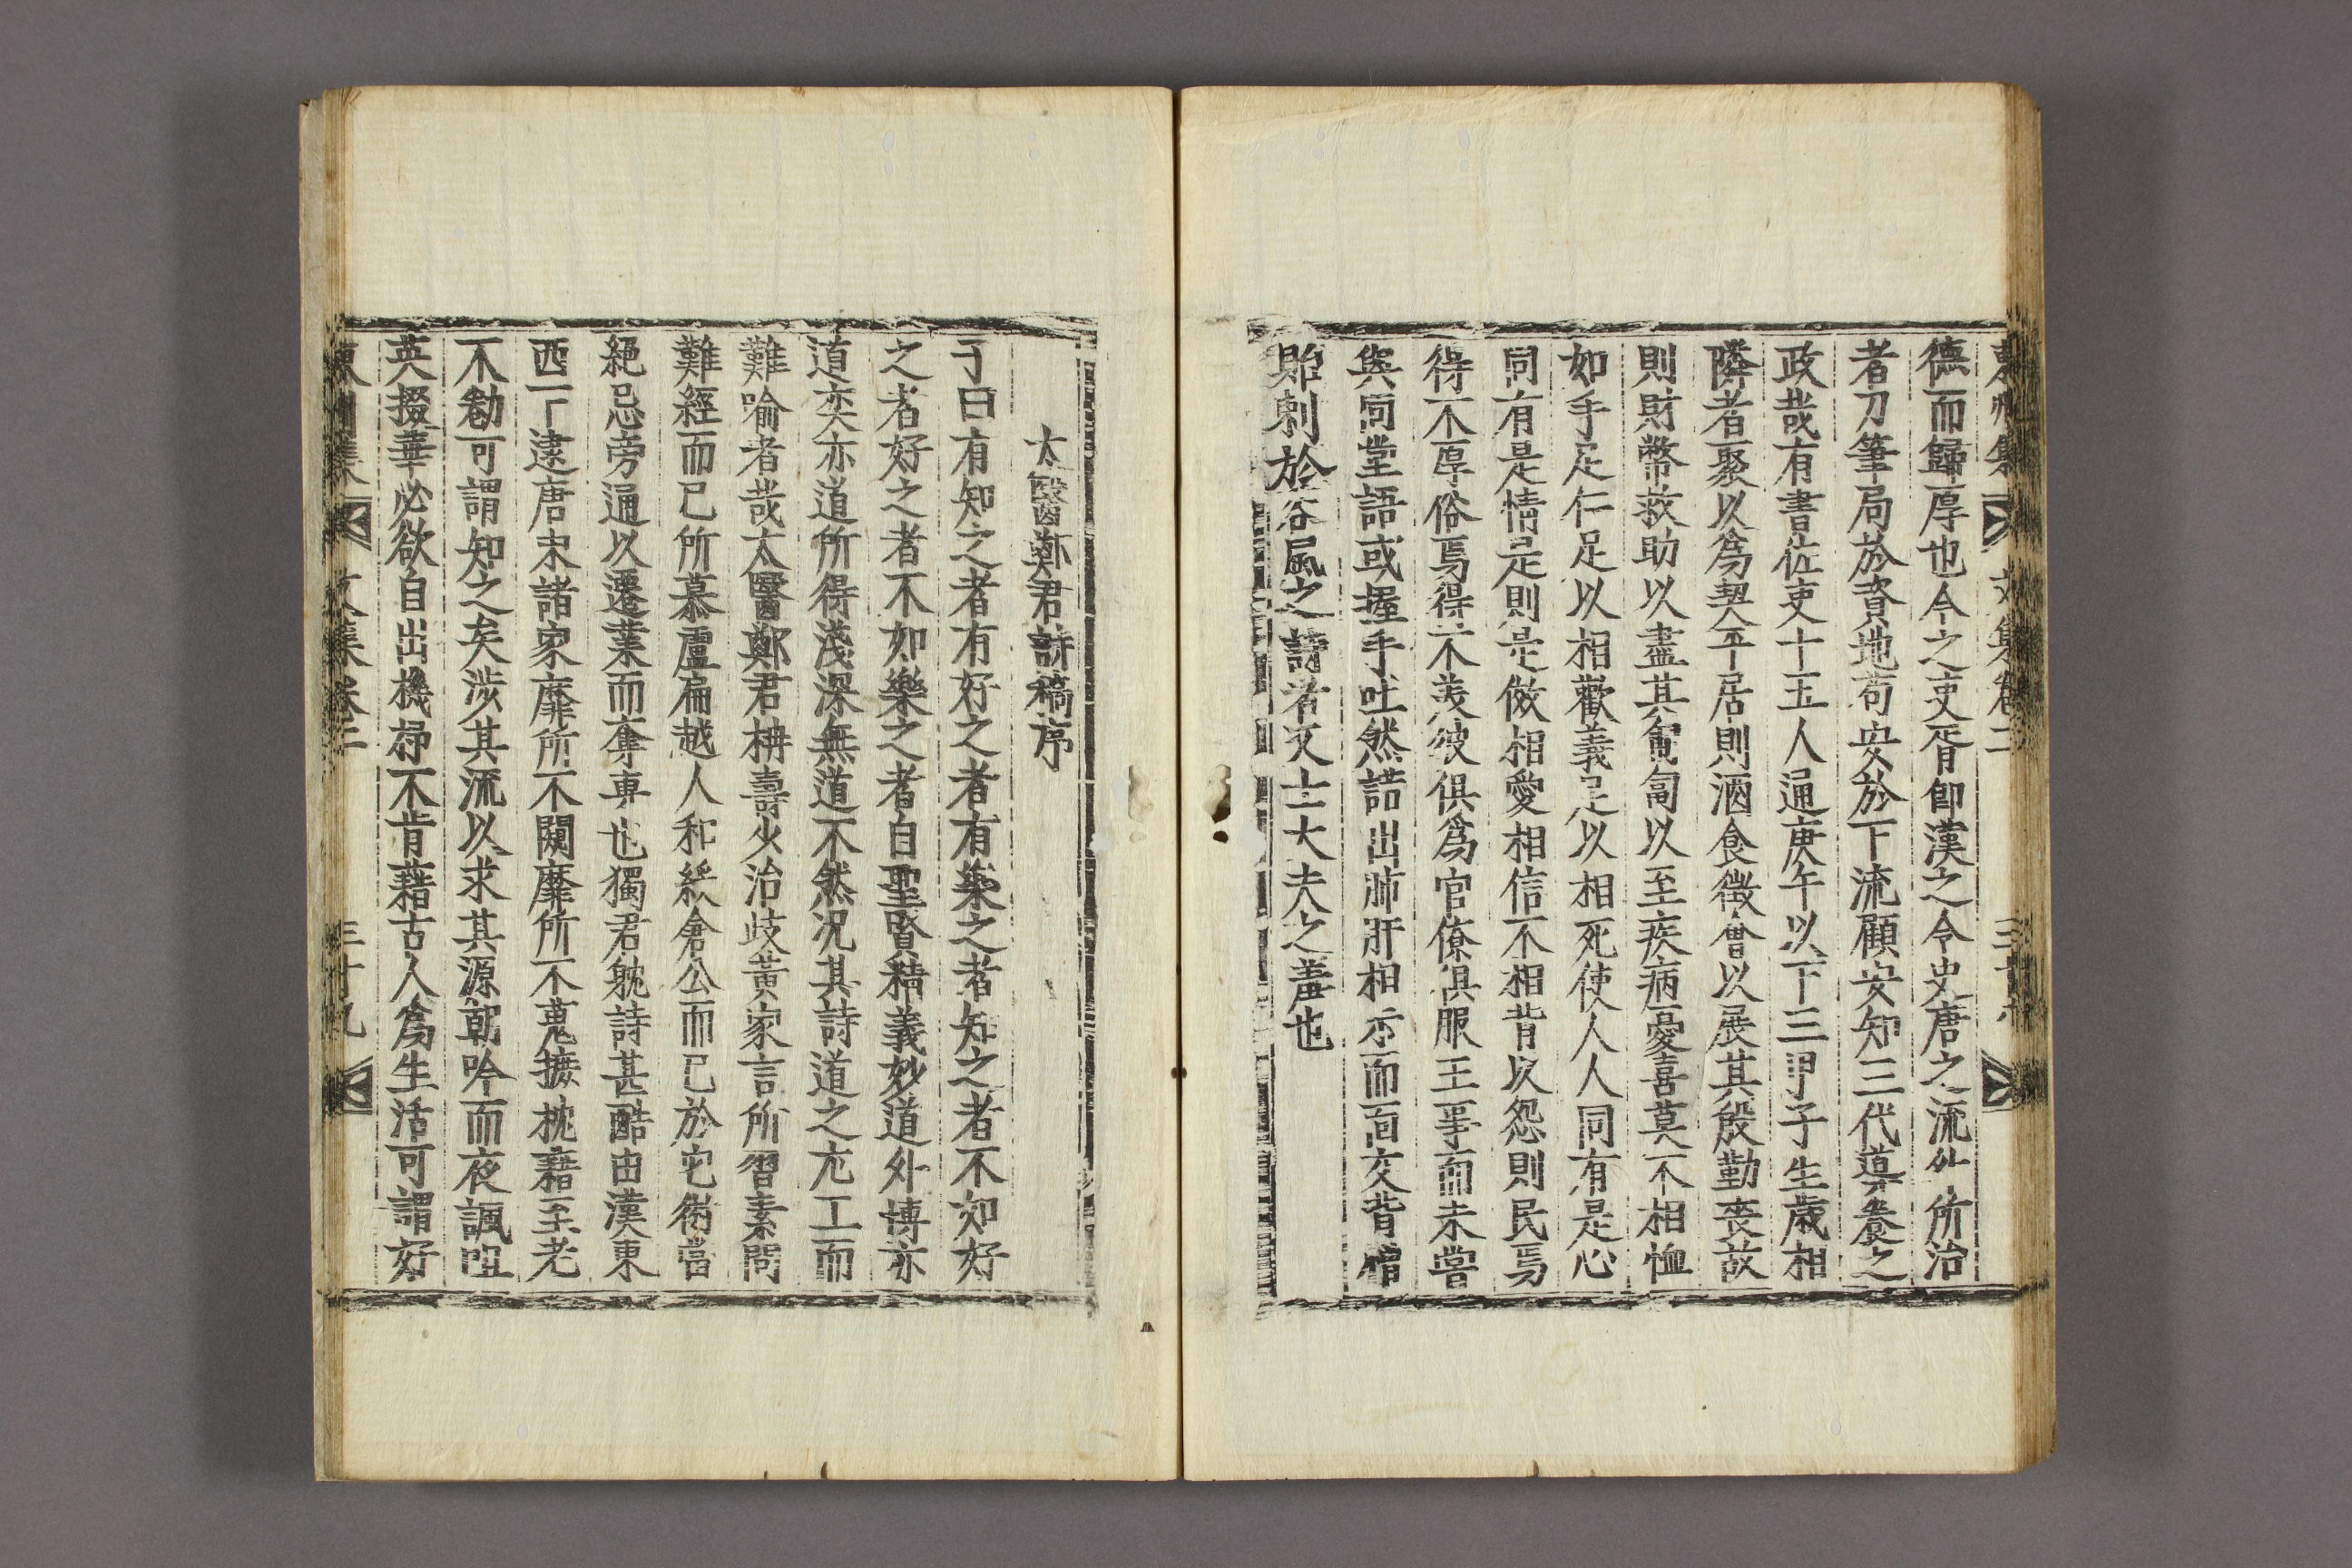 東州集 文集卷二 三十八
德而歸厚也今之吏胥卽漢之令史唐之流外所治
者刀筆局於資地苟安於下流顧安知三代導養之
政哉有書佐吏十五人通庚午以下三甲子生歲相
隣者聚以爲契平居則酒食徵會以展其殷勤喪故
則財幣救助以盡其匍匐以至疾病憂喜莫不相恤
如手足仁足以相歡義足以相死使人人同有是心
同有是情足則是倣相愛相信不相背以怨則民焉
得不厚俗焉得不美彼俱爲官僚俱服王事而未嘗
與同堂語或握手吐然諾出肺肝相示而面交背憎
貽刺於谷風之詩者又士大夫之羞也
太醫鄭君詩稿序
子曰有知之者有好之者有樂之者知之者不如好
之者好之者不如樂之者自聖賢精義妙道外博亦
道奕亦道所得淺深無道不然况其詩道之尤工而
難喻者哉太醫鄭君柟壽少治歧黃家言所習素問
難經而已所慕盧扁越人和緩倉公而已於它術當
絕忌旁通以遷業而奪專也獨君躭詩甚酷由漢東
西一下逮唐宋諸家靡所不闚靡所不蒐摭枕藉至老
不勌可謂知之矣涉其流以求其源朝吟而夜諷咀
英掇華必欲自出機杼不肯藉古人爲生活可謂好
東州集 文集卷二 三十九